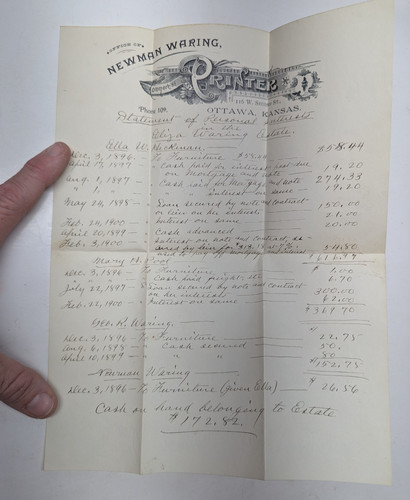 OFFICE OF
NEWMAN WARING,
PRINTER
'Phone 109. 118 W. Second St.,
OTTAWA, KANSAS.
Statement of Personal Interests
in the
Eliza Waring Estate.
Ella W. Heckman.
Dec. 3, 1896 - To Furniture $58.44
April 19, 1897 - " Cash paid for interest past due
on Mortgage and note 19.20
Aug. 1, 1897 - " Cash paid for Mortg. and note 274.33
" 1, " - " " " interest on same 19.20
May 24, 1898 - " Loan secured by note and contract
or lien on her interests 150.00
Feb. 24, 1900 - Interest on same 21.00
April 20, 1899 - " Cash advanced 20.00
Feb. 3, 1900 - Interest on note and contract, se-
cured by
used to pay off mortgage and interest 54.80
$616.97
Mary H.
Dec. 3, 1896 - To Furniture $1.00
" Cash paid freight, etc. 6.70
July 22, 1897 - " Loan secured by note and contract
on her interests 300.00
Feb. 22, 1900 - Interest on same 62.00
$369.70
Geo. R. Waring.
Dec. 3, 1896 - To Furniture 22.75
Aug. 6, 1898 - " Cash secured 50.
April 10, 1899 - " " " 80.
$152.75
Newman Waring
Dec. 3, 1896 - To Furniture (given Ella) $26.56
Cash on hand belonging to Estate
$172.82.